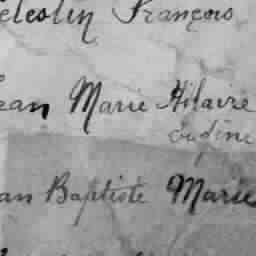 Celestin François
Jean Marie Hilaire
Jean Baptiste Marie